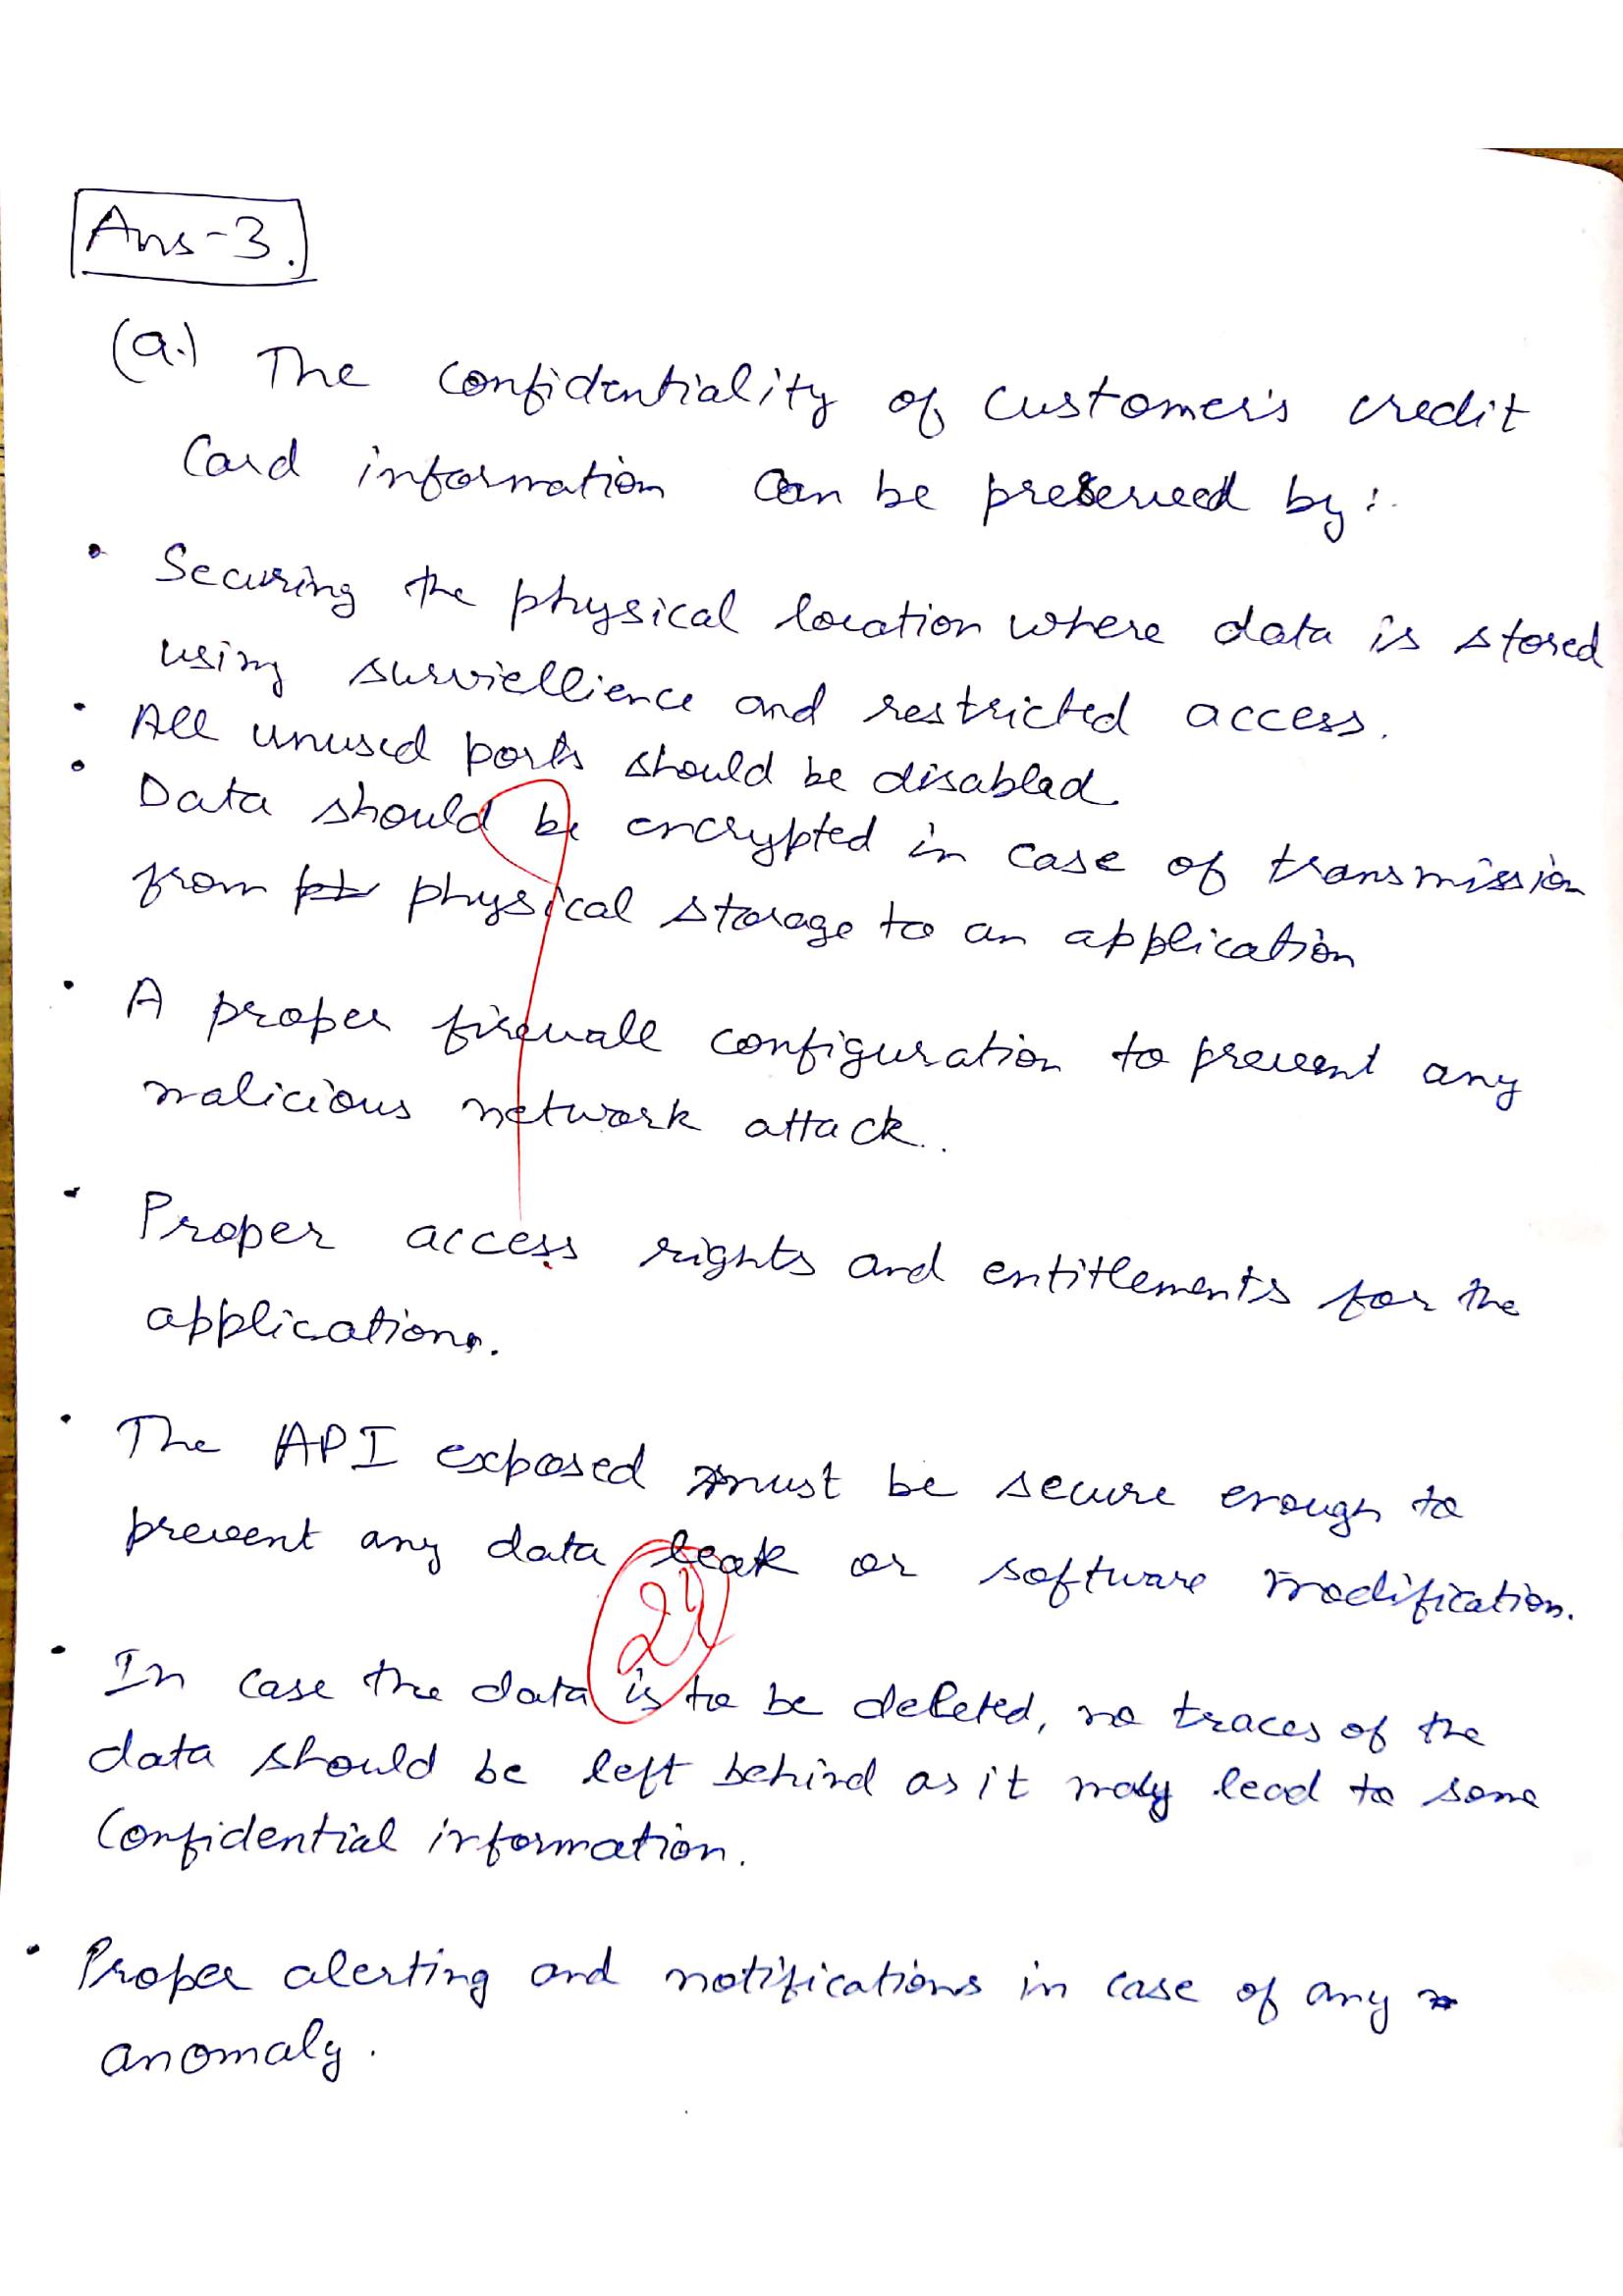 Ans-3.
(a.) The confidentiality of customer's credit
Card information can be preserved by :
• Securing the physical location where data is stored
using surviellience and restricted access.
• All unused ports should be disabled.
• Data should be encrypted in case of transmission
from physical storage to an application
• A proper firewall configuration to prevent any
malicious network attack.
• Proper access rights and entitlements for the
applications.
• The API exposed must be secure enough to
prevent any data leak or software modification.
• In case the data is to be deleted, no traces of the
data should be left behind as it may lead to some
Confidential information.
• Proper alerting and notifications in case of any
anomaly.